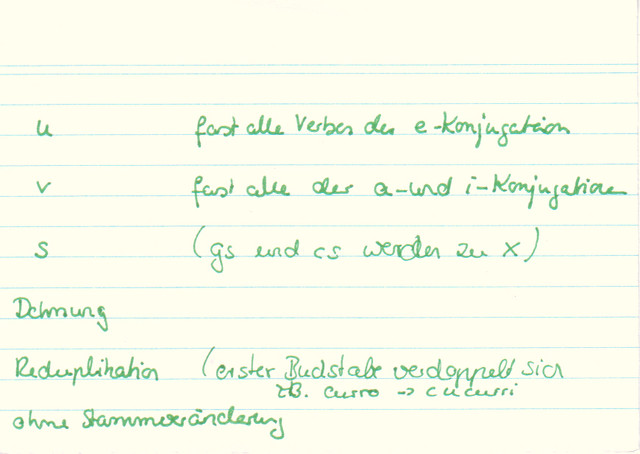 u fast alle Verben der e-Konjugation
v fast alle der a- und i-Konjugation
s (gs und cs werden zu x)
Dehnung
Reduplikation (erster Buchstabe verdoppelt sich
zB. curro → cucurri
ohne Stammveränderung